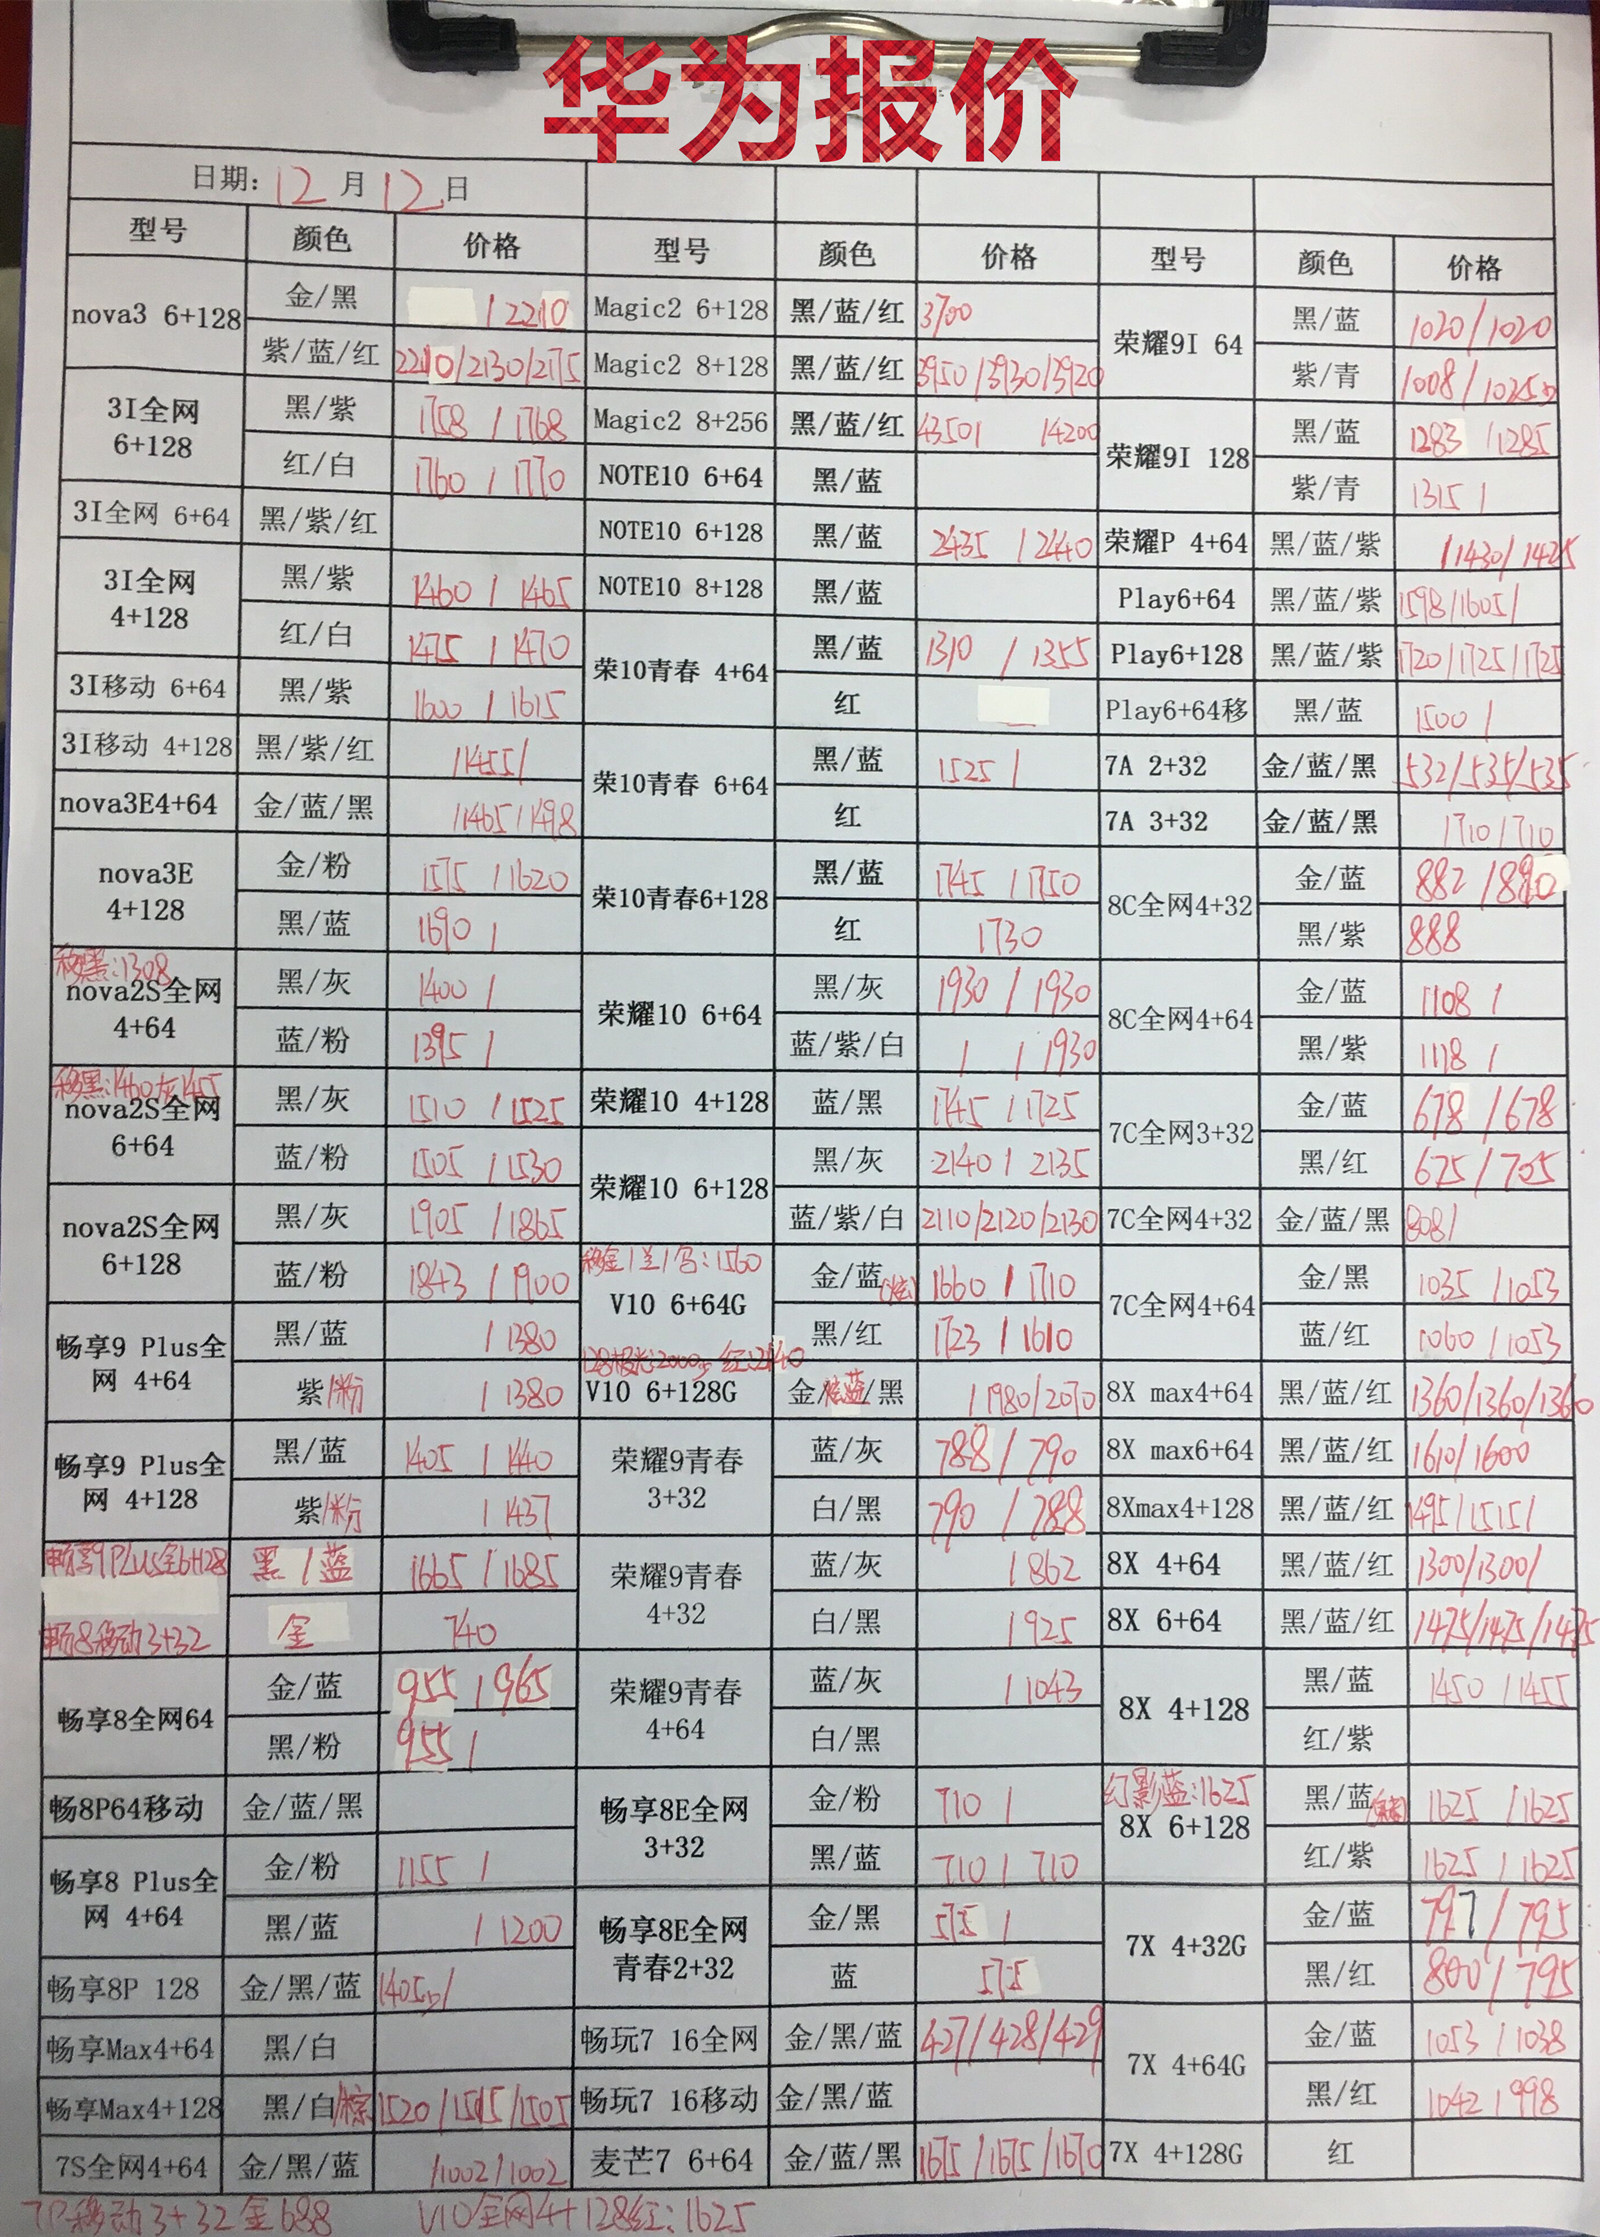 华为报价
日期: 12 月 12 日
型号 颜色 价格 型号 颜色 价格 型号 颜色 价格
nova3 6+128 金/黑 /2210 Magic2 6+128 黑/蓝/红 3700 荣耀9I 64 黑/蓝 1020/1020
紫/蓝/红 2210/2130/2175 Magic2 8+128 黑/蓝/红 3950/3930/3920 紫/青 1008/1025
3I全网 6+128 黑/紫 1758/1768 Magic2 8+256 黑/蓝/红 4350/ /4200 荣耀9I 128 黑/蓝 1283/1285
红/白 1760/1770 NOTE10 6+64 黑/蓝 紫/青 1315/
3I全网 6+64 黑/紫/红 NOTE10 6+128 黑/蓝 2435/2440 荣耀P 4+64 黑/蓝/紫 /1430/1425
3I全网 4+128 黑/紫 1460/1465 NOTE10 8+128 黑/蓝 Play6+64 黑/蓝/紫 1598/1605/
红/白 1475/1470 荣10青春 4+64 黑/蓝 1310/1355 Play6+128 黑/蓝/紫 1720/1725/1725
3I移动 6+64 黑/紫 1600/1615 红 Play6+64移 黑/蓝 1500/
3I移动 4+128 黑/紫/红 /1455/ 荣10青春 6+64 黑/蓝 1525/ 7A 2+32 金/蓝/黑 532/535/535
nova3E4+64 金/蓝/黑 /1465/1498 红 7A 3+32 金/蓝/黑 /710/710
nova3E 4+128 金/粉 1575/1620 荣10青春6+128 黑/蓝 1745/1750 8C全网4+32 金/蓝 882/890
黑/蓝 1690/ 红 1730 黑/紫 888
移黑:1308
nova2S全网 4+64 黑/灰 1400/ 荣耀10 6+64 黑/灰 1930/1930 8C全网4+64 金/蓝 1108/
蓝/粉 1395/ 蓝/紫/白 / /1930 黑/紫 1118/
移黑:1460/灰1455
nova2S全网 6+64 黑/灰 1510/1525 荣耀10 4+128 蓝/黑 1745/1725 7C全网3+32 金/蓝 678/678
蓝/粉 1505/1530 荣耀10 6+128 黑/灰 2140/2135 黑/红 675/705
nova2S全网 6+128 黑/灰 1905/1865 蓝/紫/白 2110/2120/2130 7C全网4+32 金/蓝/黑 808/
蓝/粉 1843/1900 V10 6+64G 金/蓝 1660/1710 7C全网4+64 金/黑 1035/1053
畅享9 Plus全网 4+64 黑/蓝 /1380 黑/红 1723/1610 蓝/红 1060/1053
紫/粉 /1380 V10 6+128G 金/炫蓝/黑 /1980/2070 8X max4+64 黑/蓝/红 1360/1360/1360
畅享9 Plus全网 4+128 黑/蓝 1405/1440 荣耀9青春 3+32 蓝/灰 788/790 8X max6+64 黑/蓝/红 1610/1600
紫/粉 /1437 白/黑 790/788 8Xmax4+128 黑/蓝/红 1495/1515/
畅享9Plus全6+128 黑/蓝 1665/1685 荣耀9青春 4+32 蓝/灰 /862 8X 4+64 黑/蓝/红 1300/1300/
畅8移动3+32 金 740 白/黑 /925 8X 6+64 黑/蓝/红 1475/1475/1475
畅享8全网64 金/蓝 955/965 荣耀9青春 4+64 蓝/灰 /1043 8X 4+128 黑/蓝 1450/1455
黑/粉 955/ 白/黑 红/紫
畅8P64移动 金/蓝/黑 畅享8E全网 3+32 金/粉 710/ 幻影蓝:1625 8X 6+128 黑/蓝 1625/1625
畅享8 Plus全网 4+64 金/粉 1155/ 黑/蓝 710/710 红/紫 1625/1625
黑/蓝 /1200 畅享8E全网 青春2+32 金/黑 575/ 7X 4+32G 金/蓝 797/795
畅享8P 128 金/黑/蓝 1405/ 蓝 575 黑/红 800/795
畅享Max4+64 黑/白 畅玩7 16全网 金/黑/蓝 427/428/429 7X 4+64G 金/蓝 1053/1038
畅享Max4+128 黑/白/棕 1520/1515/1505 畅玩7 16移动 金/黑/蓝 黑/红 1042/998
7S全网4+64 金/黑/蓝 /1002/1002 麦芒7 6+64 金/蓝/黑 1675/1675/1670 7X 4+128G 红
7P移动3+32金688 V10全网4+128红:1625